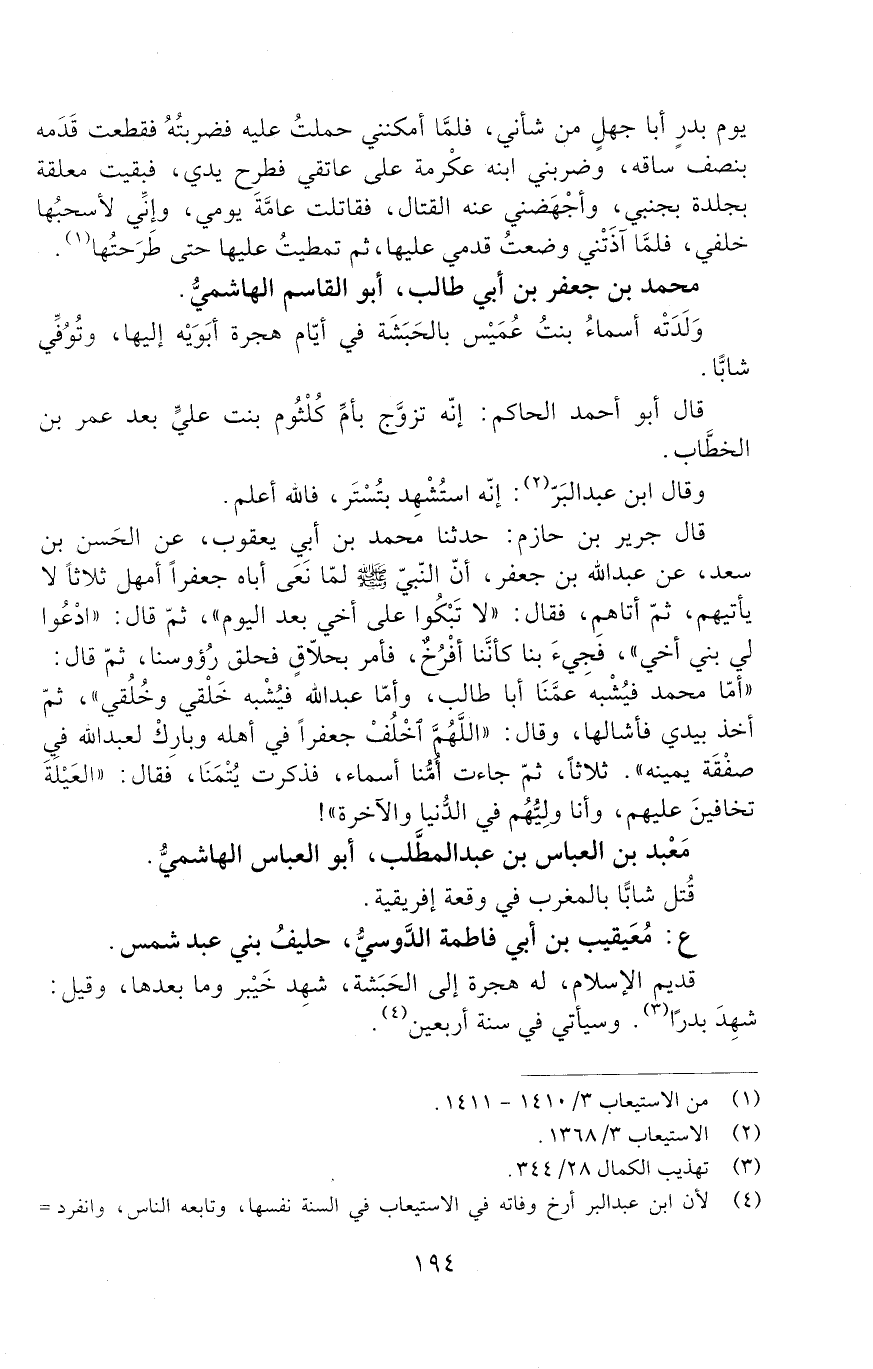 يوم بدرٍ أبا جهلٍ من شأني، فلمَّا أمكنني حملتُ عليه فضربتُهُ فقطعت قَدَمه
بنصف ساقه، وضربني ابنه عكْرمة على عاتقي فطرح يدي، فبقيت معلقة
بجلدة بجنبي، وأجْهَضني عنه القتال، فقاتلت عامَّةَ يومي، وإنِّي لأسحبُها
خلفي، فلمَّا آذَتْني وضعتُ قدمي عليها، ثم تمطيتُ عليها حتى طَرَحتُها(١).
محمد بن جعفر بن أبي طالب، أبو القاسم الهاشميُّ.
وَلَدَتْه أسماءُ بنتُ عُمَيْس بالحَبَشَة في أيّام هجرة أبَوَيْه إليها، وتُوُفِّي
شابًّا.
قال أبو أحمد الحاكم: إنّه تزوَّج بأمِّ كُلْثُوم بنت عليٍّ بعد عمر بن
الخطَّاب.
وقال ابن عبدالبَرّ(٢): إنّه استُشْهِد بتُسْتَر، فالله أعلم.
قال جرير بن حازم: حدثنا محمد بن أبي يعقوب، عن الحَسن بن
سعد، عن عبدالله بن جعفر، أنّ النّبيّ ﷺ لمّا نَعَى أباه جعفراً أمهل ثلاثاً لا
يأتيهم، ثمّ أتاهم، فقال: «لا تَبْكُوا على أخي بعد اليوم»، ثمّ قال: «ادْعُوا
لي بني أخي»، فَجِيءَ بنا كأنَّنا أفْرُخٌ، فأمر بحلاّقٍ فحلق رُؤوسنا، ثمّ قال:
«أمّا محمد فيُشْبه عمَّنَا أبا طالب، وأمّا عبدالله فيُشْبه خَلْقي وخُلُقي»، ثمّ
أخذ بيدي فأشالها، وقال: «اللَّهُمَّ ٱخْلُفْ جعفراً في أهله وبارِكْ لعبدالله في
صفْقَة يمينه». ثلاثاً، ثمّ جاءت أُمُّنا أسماء، فذكرت يُتْمَنَا، فقال: «العَيْلَةَ
تخافينَ عليهم، وأنا وليُّهُم في الدُّنيا والآخرة»!
مَعْبد بن العباس بن عبدالمطَّلب، أبو العباس الهاشميُّ.
قُتل شابًّا بالمغرب في وقعة إفريقية.
ع: مُعَيقيب بن أبي فاطمة الدَّوسيُّ، حليفُ بني عبد شمس.
قديم الإسلام، له هجرة إلى الحَبَشة، شهِد خَيْبر وما بعدها، وقيل:
شهِدَ بدرًا(٣). وسيأتي في سنة أربعين(٤).
(١) من الاستيعاب ٣/ ١٤١٠ - ١٤١١.
(٢) الاستيعاب ٣/ ١٣٦٨.
(٣) تهذيب الكمال ٢٨/ ٣٤٤.
(٤) لأن ابن عبدالبر أرخ وفاته في الاستيعاب في السنة نفسها، وتابعه الناس، وانفرد =
١٩٤